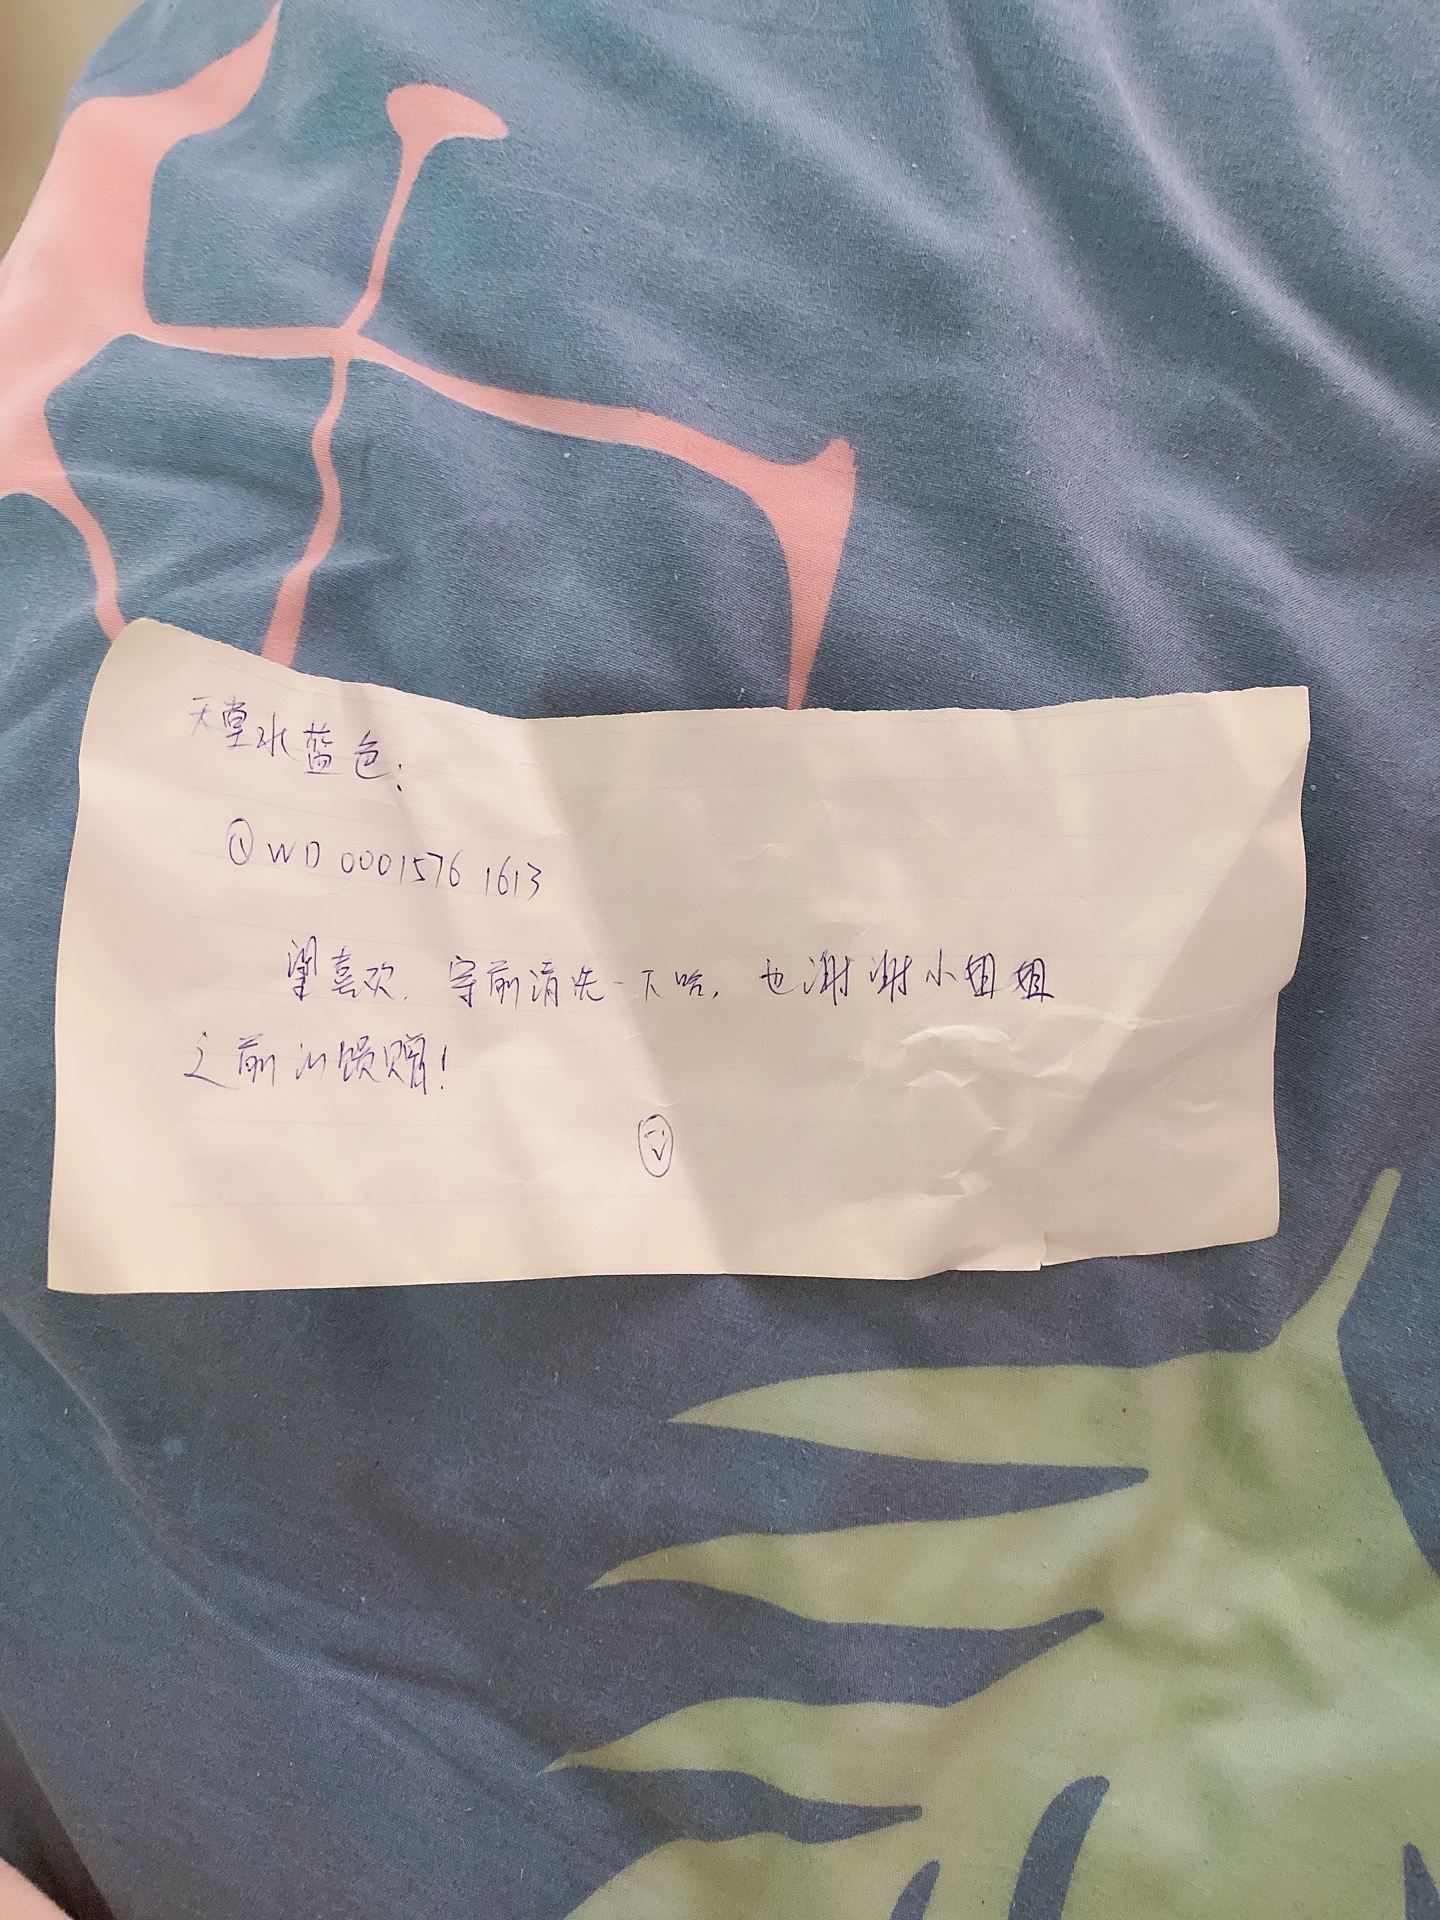 天堂水蓝色：
①WD 0001576 1613
望喜欢，穿前清洗一下哈，也谢谢小姐姐
之前的馈赠！